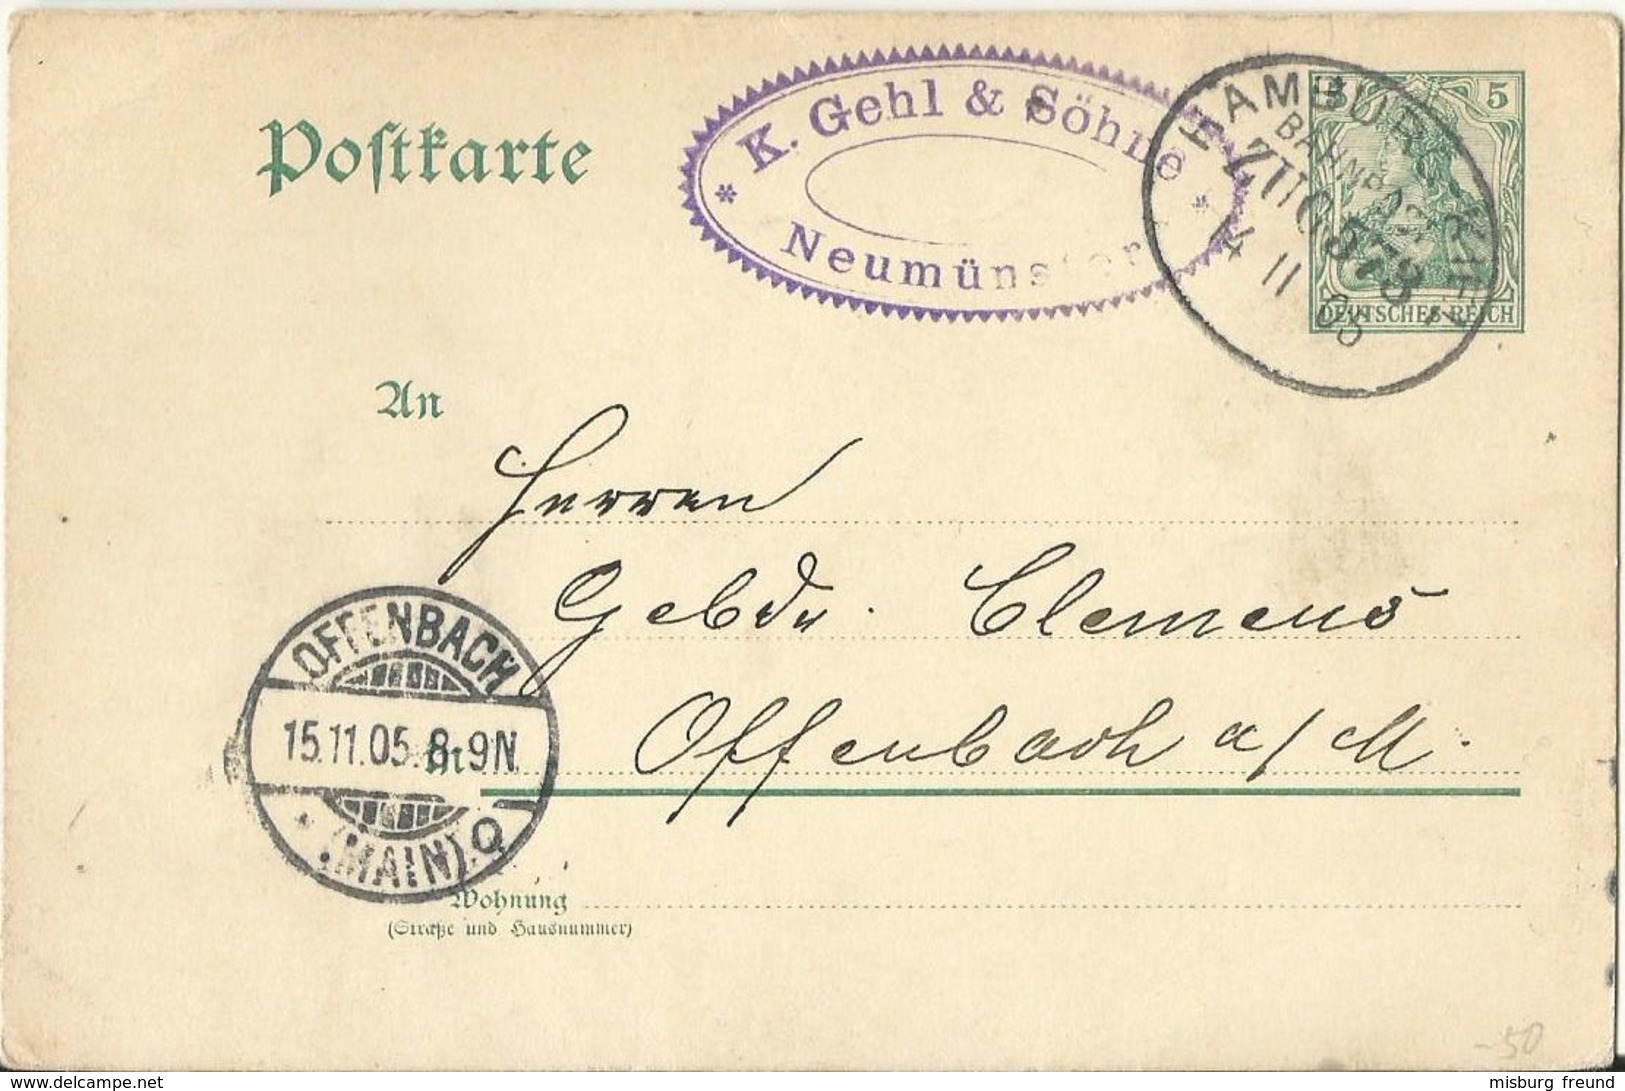 Postkarte
K. Gehl & Söhne
* Neumünster *
HAMBURG KIEL
BAHNPOST
ZUG 573
14 11 05
5 5
DEUTSCHES REICH
An
Herren
Gebdr. Clemens
Offenbach a/M.
in
OFFENBACH
15.11.05. 8-9N.
* (MAIN).Q
Wohnung
(Straße und Hausnummer)
-50
delcampe.net
misburg freund